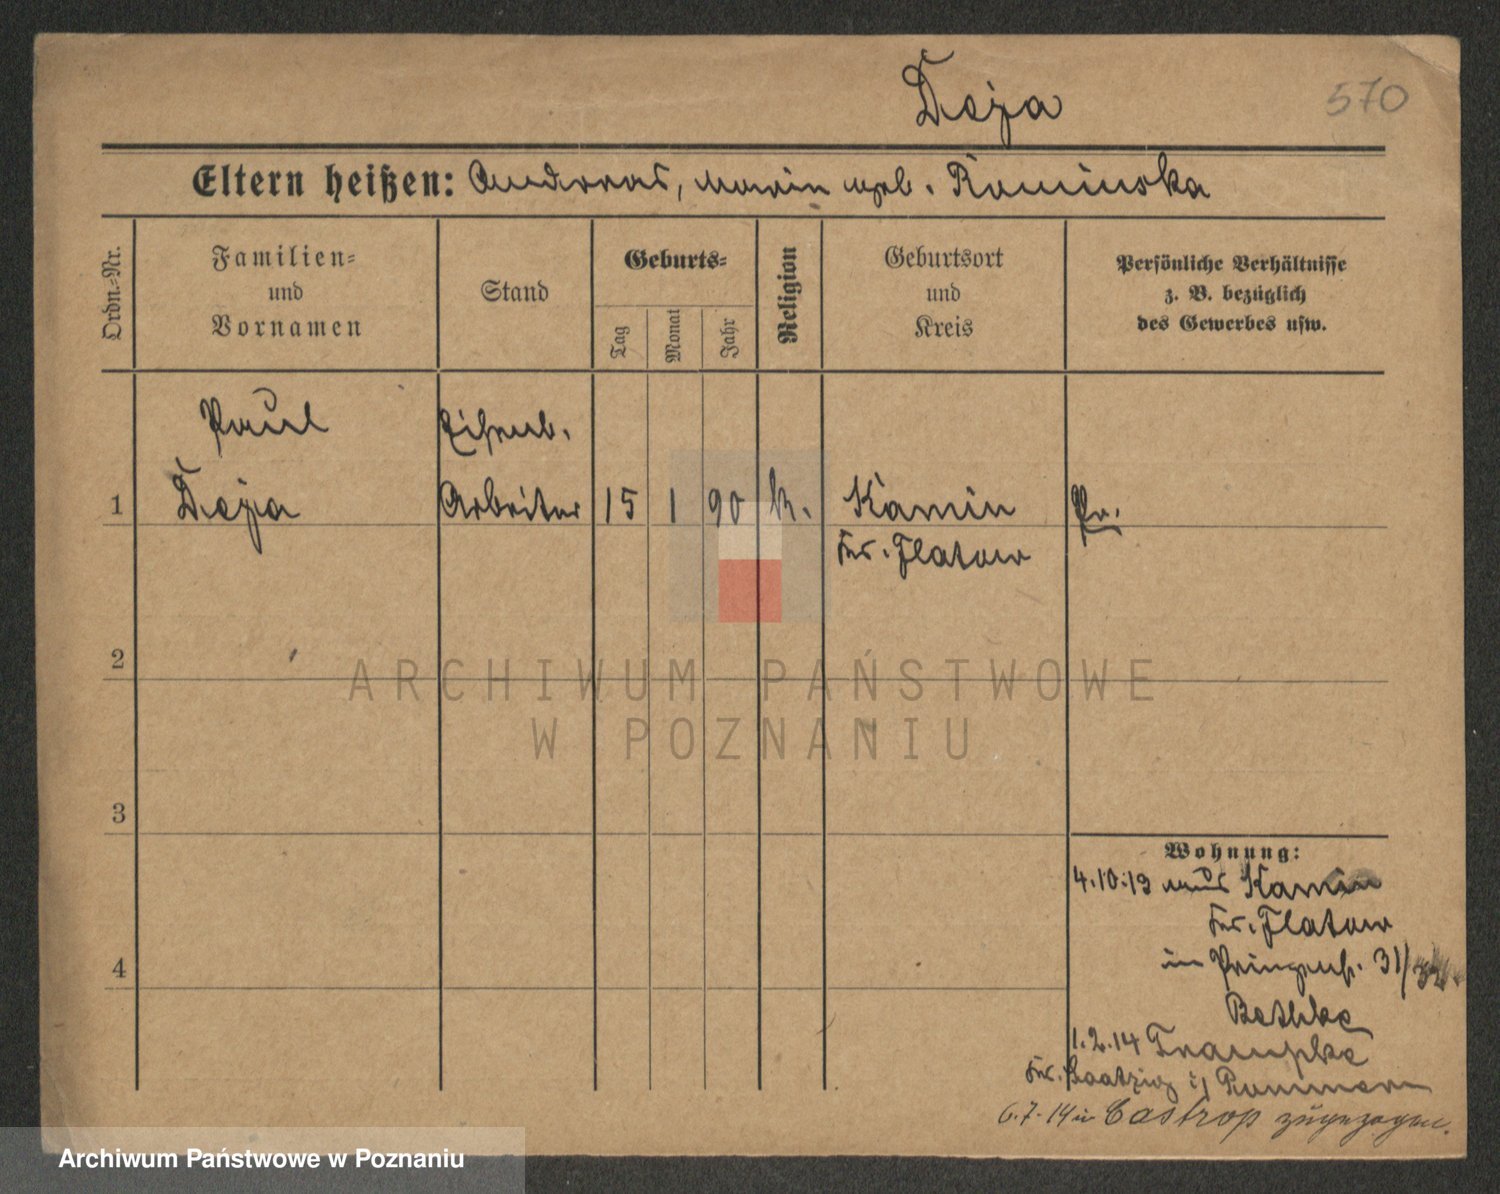 Deja
570
Eltern heißen: Andreas, Marin geb. Kaminska
Ordn.-Nr.
Familien-
und
Vornamen
Stand
Geburts-
Tag
Monat
Jahr
Religion
Geburtsort
und
Kreis
Persönliche Verhältnisse
z. B. bezüglich
des Gewerbes usw.
Paul
Deja
Eisenb.
Arbeiter
1
15
1
90
k.
Kamin
Kr. Flatow
Pr.
2
3
4
Wohnung:
4.10.13 aus Kamin
Kr. Flatow
in Prinzenst. 31/
Bethke
1.2.14 Trampke
Kr. Saatzig i/ Pommern
6.7.14 in Castrop zugezogen.
ARCHIWUM PAŃSTWOWE
W POZNANIU
Archiwum Państwowe w Poznaniu